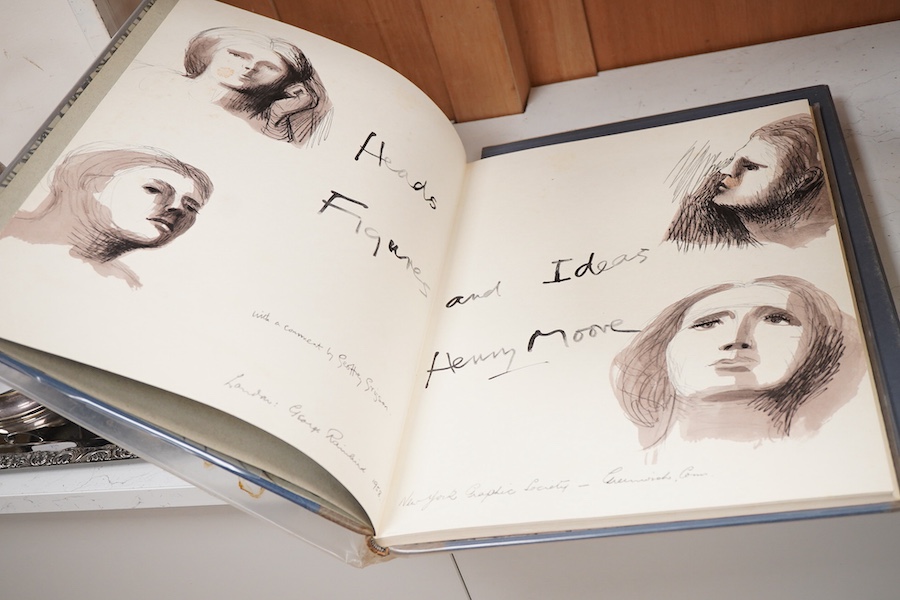 Heads
Figures
and Ideas
Henry Moore
with a comment by Geoffrey Grigson
London: George Rainbird 1958
New York Graphic Society — Greenwich, Conn.